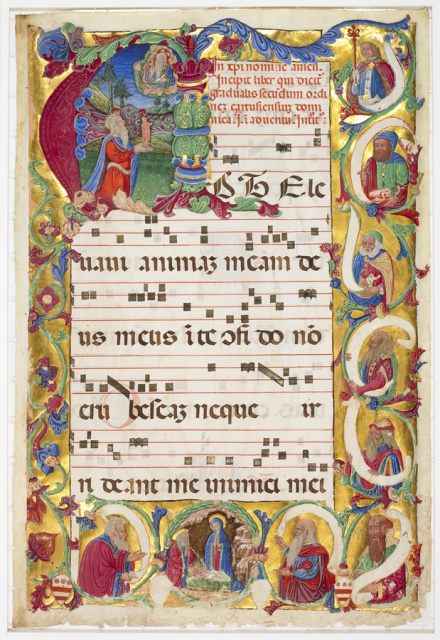 In xp̄i nomine amen.
Incipit liber qui dicit̄
gradualis secūdum ordi
nez cartusiensiuz domi
nica
D TE Le
uaui animaz meam de
us meus ī te ↄfi do nō
eru bescaz neque ir
ri deant me inimici mei